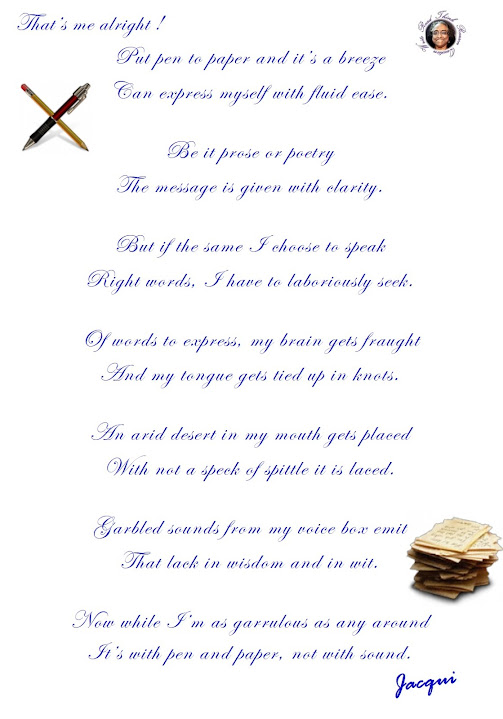 That's me alright !
Put pen to paper and it's a breeze
Can express myself with fluid ease.
Be it prose or poetry
The message is given with clarity.
But if the same I choose to speak
Right words, I have to laboriously seek.
Of words to express, my brain gets fraught
And my tongue gets tied up in knots.
An arid desert in my mouth gets placed
With not a speck of spittle it is laced.
Garbled sounds from my voice box emit
That lack in wisdom and in wit.
Now while I'm as garrulous as any around
It's with pen and paper, not with sound.
Jacqui